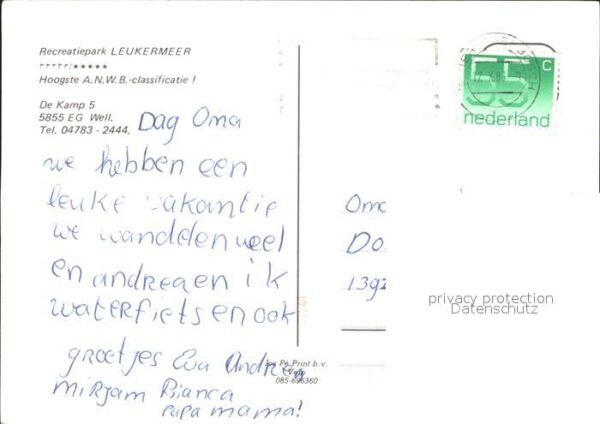 Recreatiepark LEUKERMEER
Hoogste A.N.W.B.-classificatie !
De Kamp 5
5855 EG Well.
Tel. 04783 - 2444.
Dag Oma
we hebben een
leuke vakantie
we wandelen veel
en andrea en ik
waterfietsen ook
groetjes Eva Andrea
Mirjam Bianca
papa mama!
55 c
nederland
Oma
Do
139
privacy protection
Datenschutz
Print b.v.